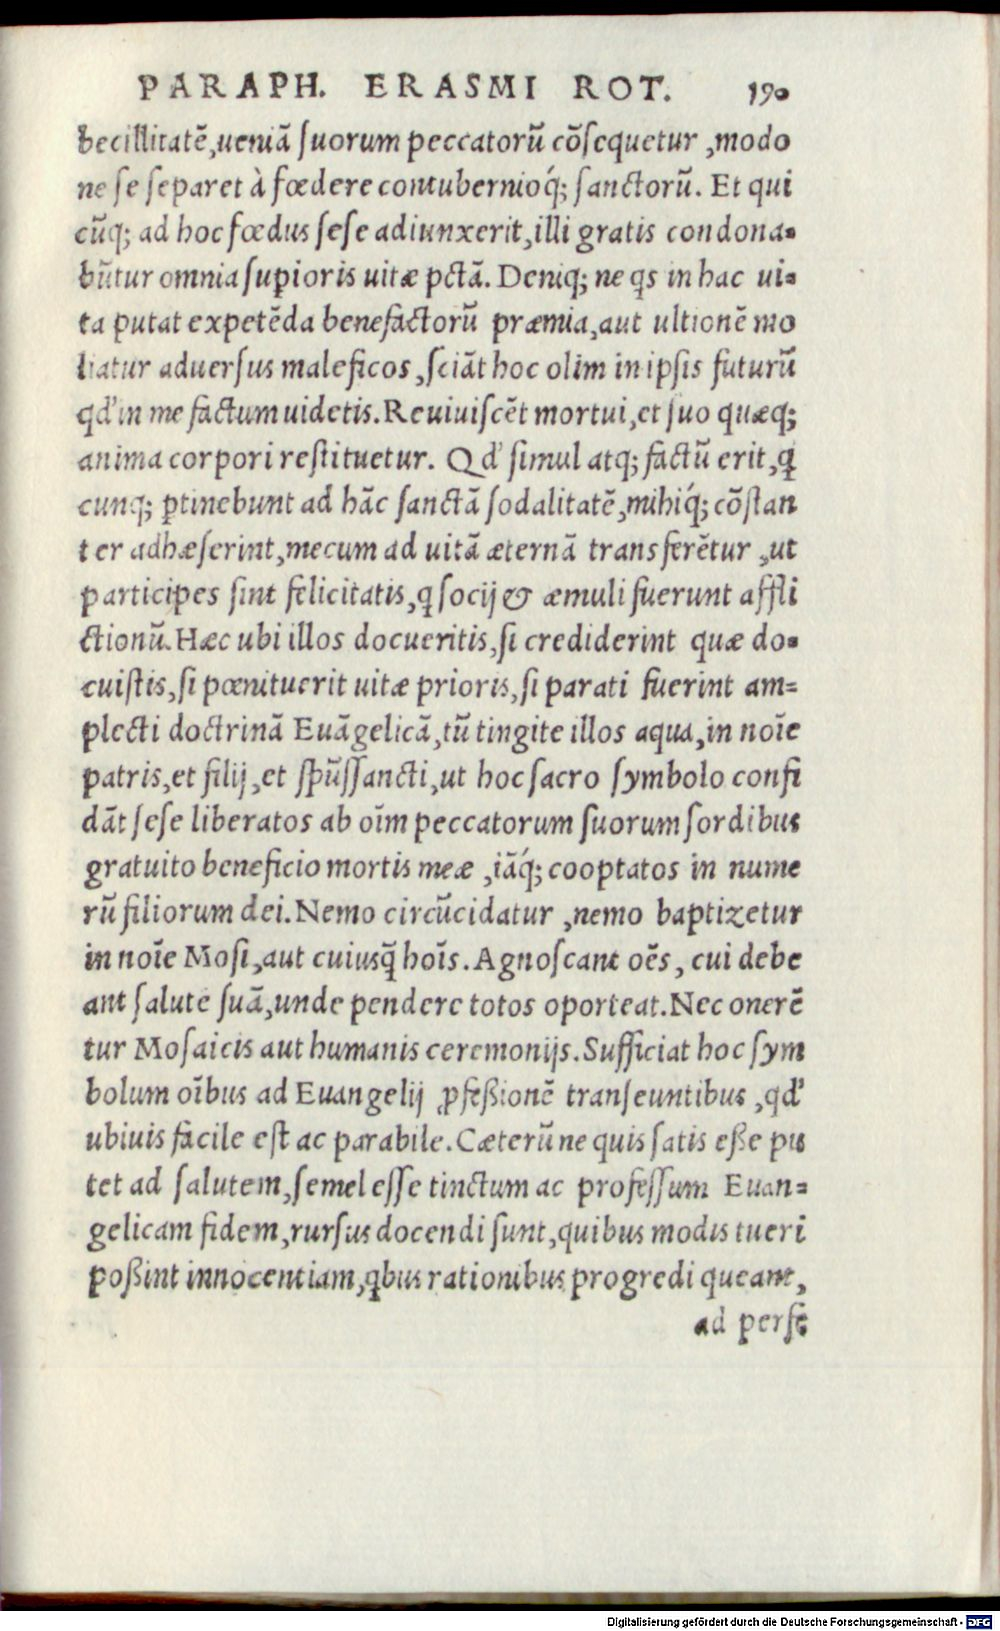 PARAPH. ERASMI ROT. 190
becillitatē,ueniā ſuorum peccatorū cōſequetur ,modo
ne ſe ſeparet à fœdere contubernioq́; ſanctorū. Et qui
cūq; ad hoc fœdus ſeſe adiunxerit,illi gratis condona-
būtur omnia ſuꝑioris uitæ pctā. Deniq; ne qs in hac ui-
ta putat expetēda benefactorū præmia,aut ultionē mo
liatur aduerſus maleficos ,ſciāt hoc olim in ipſis futurū
qd' in me factum uidetis. Reuiuiſcēt mortui,et ſuo quæq;
anima corpori reſtituetur. Qd' ſimul atq; factū erit,q
cunq; ꝑtinebunt ad hāc ſanctā ſodalitatē,mihiq́; cōſtan
ter adhæſerint,mecum ad uitā æternā transferētur ,ut
participes ſint felicitatis,q ſocij & æmuli fuerunt affli
ctionū. Hæc ubi illos docueritis,ſi crediderint quæ do-
cuiſtis,ſi pœnituerit uitæ prioris,ſi parati fuerint am=
plecti doctrinā Euāgelicā,tū tingite illos aqua,in noīe
patris,et filij,et ſpūſſancti,ut hoc ſacro ſymbolo confi
dāt ſeſe liberatos ab oīm peccatorum ſuorum ſordibus
gratuito beneficio mortis meæ ,iāq́; cooptatos in nume
rū filiorum dei. Nemo circūcidatur ,nemo baptizetur
in noīe Moſi,aut cuiusq̄ hoīs. Agnoſcant oēs, cui debe
ant ſalutē ſuā,unde pendere totos oporteat. Nec onerē
tur Moſaicis aut humanis ceremonijs. Sufficiat hoc ſym
bolum oībus ad Euangelij ꝓfeßionē tranſeuntibus ,qd'
ubiuis facile eſt ac parabile. Cæterū ne quis ſatis eße pu
tet ad ſalutem,ſemel eſſe tinctum ac profeſſum Euan=
gelicam fidem,rurſus docendi ſunt,quibus modis tueri
poßint innocentiam,qbus rationibus progredi queant,
ad perfe
Digitalisierung gefördert durch die Deutsche Forschungsgemeinschaft - DFG